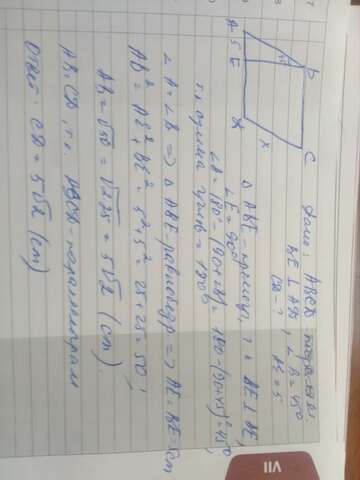 Дано: ABCD паралел.
BE ⊥ AD, ∠B = 45°
CD - ? AE = 5
A 5 E
B
C
x
△ ABE - прямоуг., т.к. BE ⊥ AE,
∠E = 90°
∠A = 180° - (90+45) = 180 - (90+45) = 45°,
т.к. сумма углов = 180°
∠A = ∠B ⇒ △ ABE равнобедр ⇒ AE = BE = 5cm
AB² = AE² + BE² = 5² + 5² = 25 + 25 = 50;
AB = √50 = √2·25 = 5√2 (cm).
AB = CD, т.к. ABCD - параллелограм
Ответ: CD = 5√2 (cm)
VII